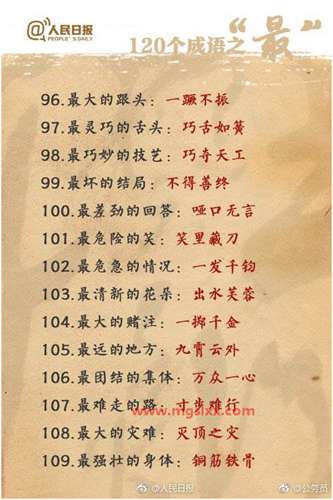 @人民日报
PEOPLE'S DAILY
120个成语之“最”
96.最大的跟头：一蹶不振
97.最灵巧的舌头：巧舌如簧
98.最巧妙的技艺：巧夺天工
99.最坏的结局：不得善终
100.最差劲的回答：哑口无言
101.最危险的笑：笑里藏刀
102.最危急的情况：一发千钧
103.最清新的花朵：出水芙蓉
104.最大的赌注：一掷千金
105.最远的地方：九霄云外
106.最团结的集体：万众一心
107.最难走的路：寸步难行
www.mgslxx.com
108.最大的灾难：灭顶之灾
109.最强壮的身体：钢筋铁骨
@人民日报
@公务员